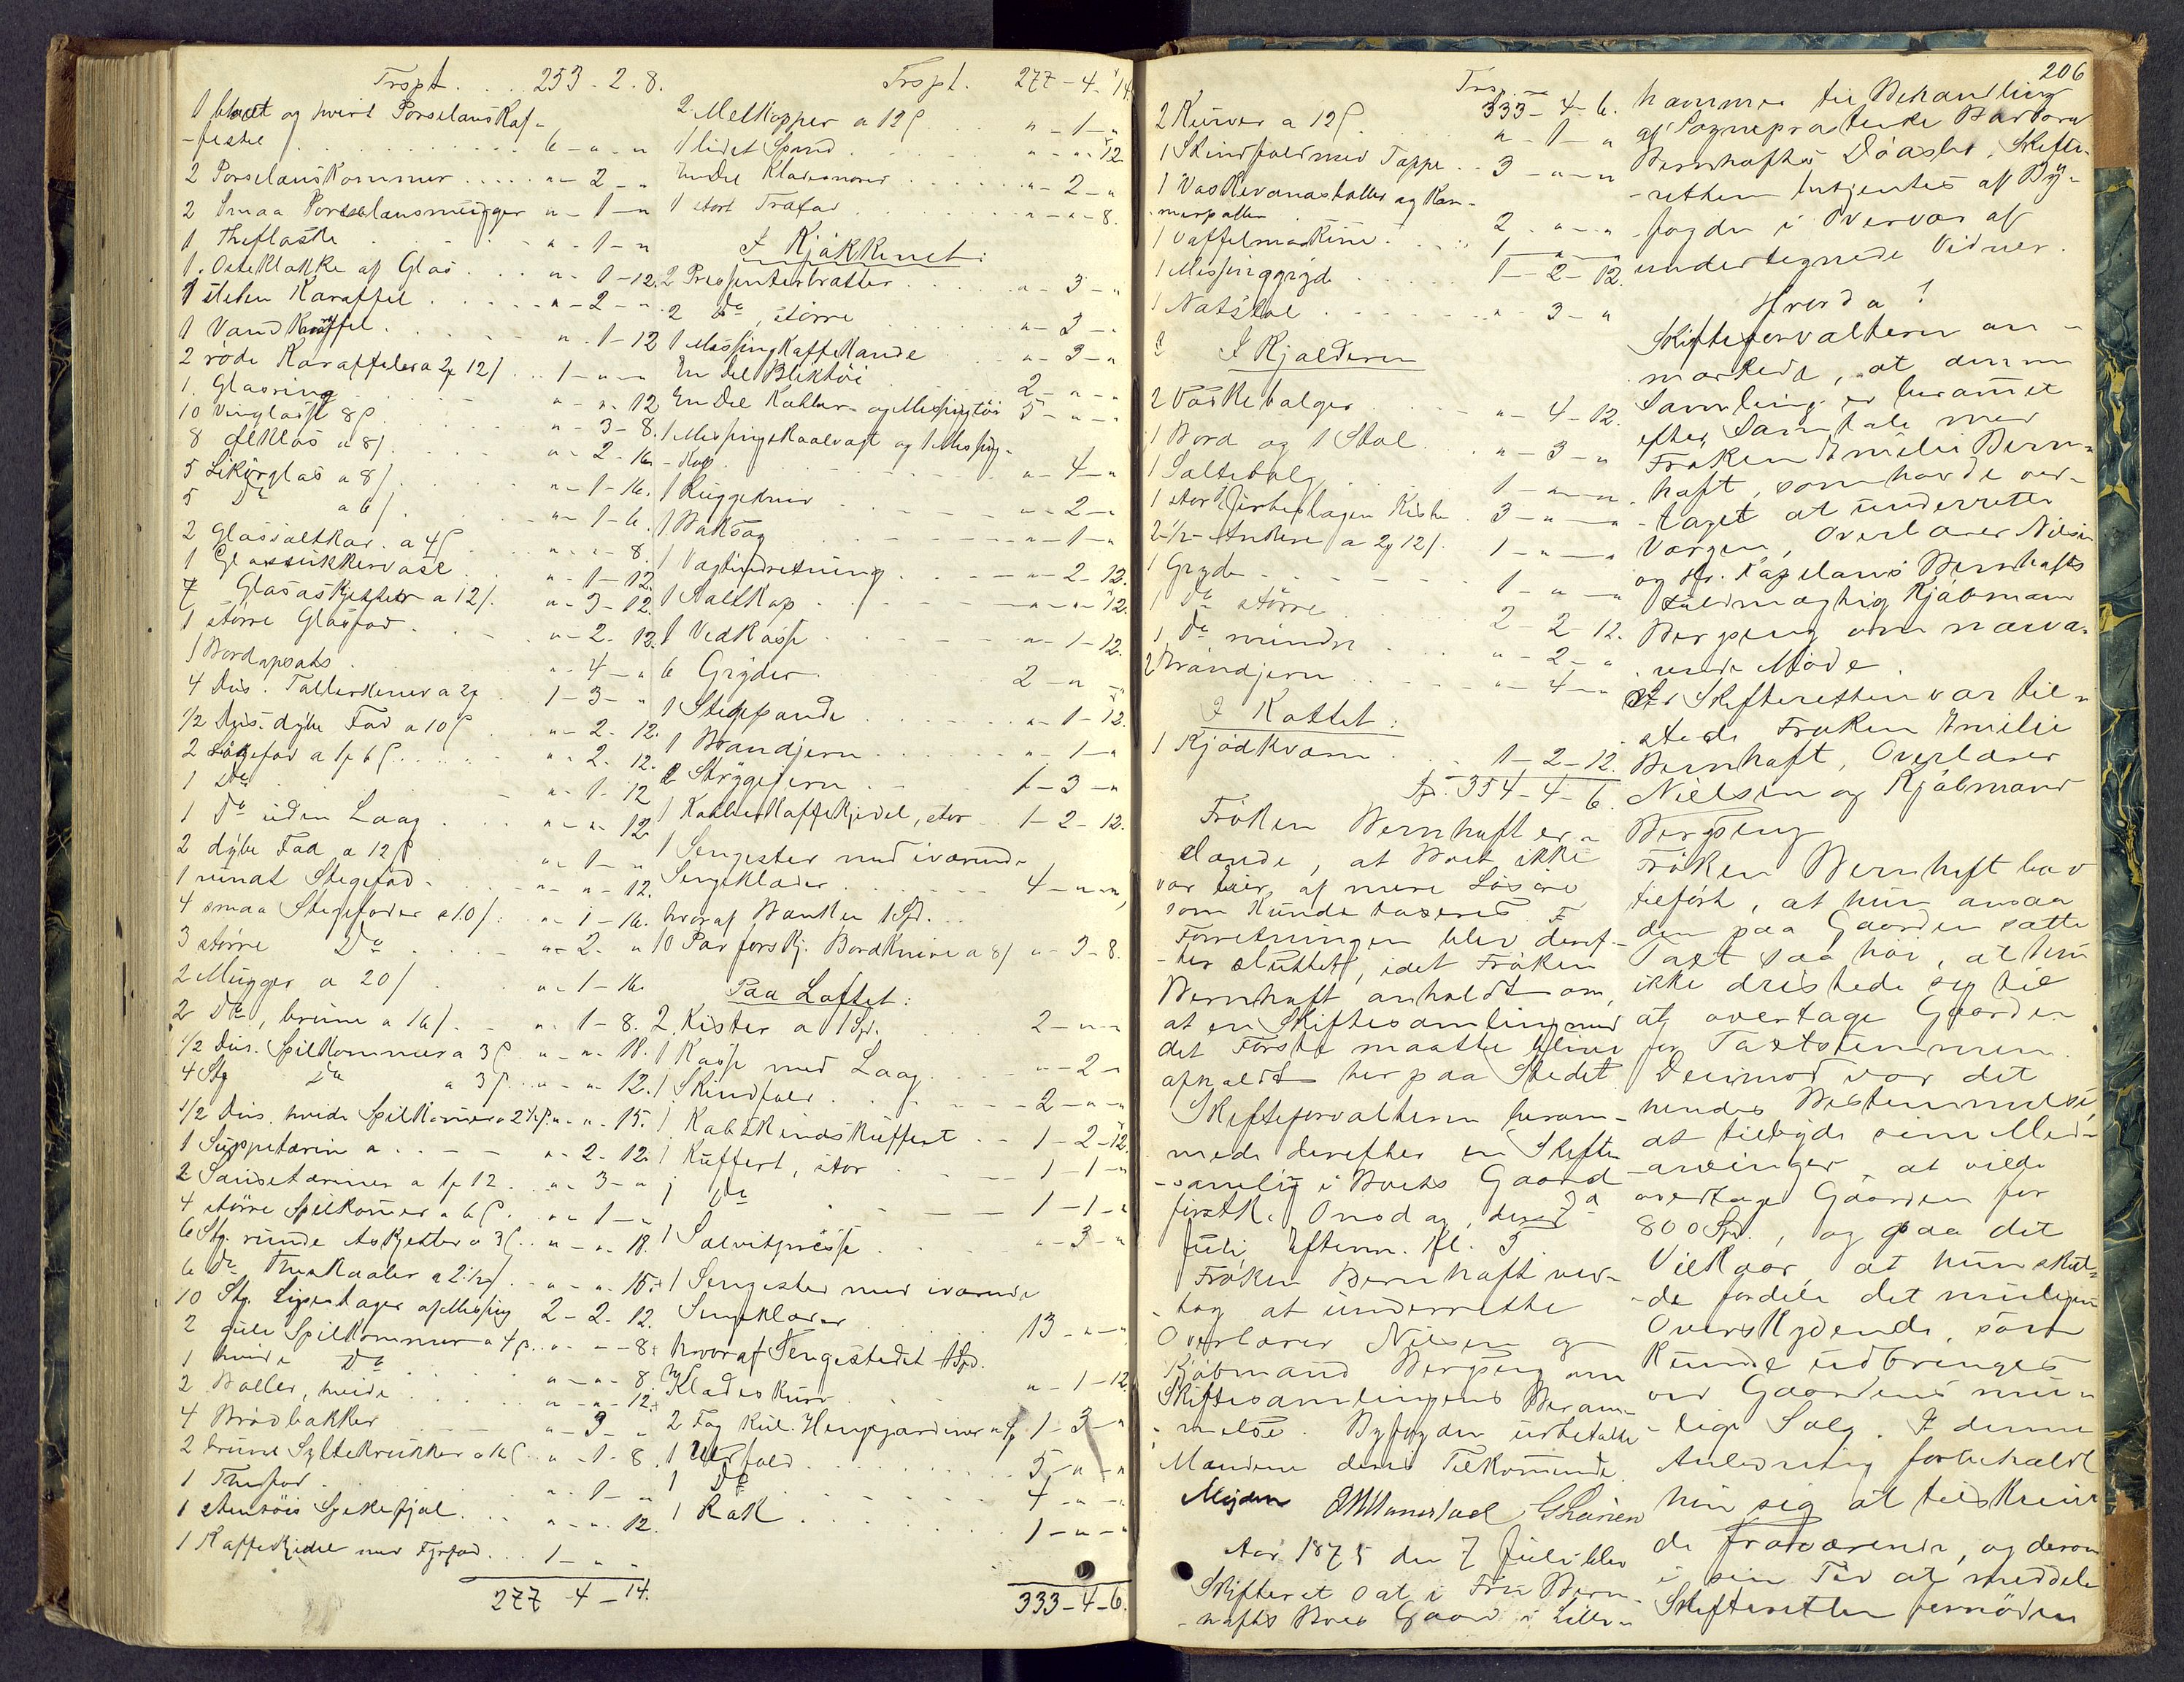 Trspt. . . . 253 - 2 - 8.
1 blaat og hvidt Porselanskaf-
-festel . . . 6 - " - "
2 Porselanskommer . . . " - 2 - "
2 Smaa Porselansmugger " - 1 - "
1 Theflaske . . . " - 1 - "
1 Osteklokke af Glas . . . " - 1 - 12.
1 sleben Karaffel . . . " - 2 - "
1 Vandkaraffel . . . " - 1 - 12
2 røde Karafler a 2 12 . . 1 - " - "
1 Glasring . . . " - " - 12
10 Vinglas a 8 . . . " - 3 - 8.
8 Ølglas a 8 . . . " - 2 - 16
5 Likørglas a 8 . . . " - 1 - 16.
5 Do a 6 . . . " - 1 - 6.
2 Glassaltkar a 4 . . . " - " - 8
1 Glassukkervase . . . " - 1 - 12.
7 Glasaskjetter a 12 . " - 3 - 12.
1 større Glasfad . . . " - 2 - 12.
1 Bordopsats . . . " - 4 - "
4 Dus. Tallerkener a 2 . 1 - 3 - "
1/2 Dus. dybe Fad a 10 . . " - 2 - 12.
2 Laagefad a 1 6 . . . " - 2 - 12.
1 Do . . . " - 1 - 12
1 Do uden Laag . . . " - " - 12
2 dybe Fad a 12 . . . " - 1 - "
1 rundt Stegefad . . . " - " - 12.
4 smaa Stegefader a 10 . " - 1 - 16.
3 større Do . . . " - 2 - "
2 Mugger a 20 . . . " - 1 - 16.
2 Do, brune a 16 . . . " - 1 - 8.
1/2 Dus. Spilkommer a 3 . " - " - 18.
4 Stk Do a 3 . . " - " - 12.
1/2 Dus. hvide Spilkommer a 2 1/2 . " - " - 15.
1 Suppeterrin a . . . " - 2 - 12.
2 Sauseterriner a 1 12 . . " - 3 - "
4 større Spilkommer a 6 . . " - 1 - "
6 Stk. runde Askjetter a 3 . . " - " - 18.
6 Do Theskaaler a 2 1/2 . . " - " - 15.
10 Stk. Lysestager af Messing 2 - 2 - 12.
2 gule Spilkommer a 4 . . " - " - 8.
1 hvid Do . . . " - " - 8
2 Boller, hvide . . . " - " - 12.
4 Brødbakker . . . " - 3 - "
2 brune Syltekrukker a 16 . . " - 1 - 8.
1 Thefad . . . " - 1 - "
1 stentøis Spekefjøl . . . " - " - 12.
1 Kaffekjedel med Fyrfad . . . 1 - " - "
277 - 4 - 14.
Trspt. 277 - 4 - 14.
2 Melkopper a 12 . . . " - 1 - "
1 lidet Spand . . . " - " - 12
En Del Kladesnorer . . . " - 2 - "
1 stort Træfad . . . " - " - 8.
I Kjøkkenet:
2 Presenterbratter . . . " - 3 - "
2 Do, større . . . " - 3 - "
1 Messingkaffekande . . " - 3 - "
En Del Bliktøi . . . 2 - " - "
En Del Kobber- og Messingtøi 5 - " - "
1 Messingskaalvagt og 1 Messing-
-Kop . . . " - 4 - "
1 Ruggekniv . . . " - 2 - "
1 Haksag . . . " - 1 - "
1 Vagtindretning . . . " - 2 - 12.
1 Saltkop . . . " - " - 12.
1 Vedkasse . . . " - 1 - 12.
6 Gryder . . . 2 - " - "
1 Stegpande . . . " - 1 - 12.
1 Brandjern . . . " - 1 - "
2 Strygejern . . . 1 - 3 - "
1 Kobberkaffekjedel, stor . . 1 - 2 - 12.
1 Sengested med iværende
Sengeklæder . . . 4 - " - "
hvoraf Bænken 1 Spd.
10 Par forskj. Bordknive a 8 " - 3 - 8.
Paa Loftet:
2 Kister a 1 Spd. . . 2 - " - "
1 Kasse med Laag . . . " - 2 - "
1 Skindfæld . . . 2 - " - "
1 Kabskindskuffert . . 1 - 2 - 12.
1 Kuffert, stor . . . 1 - 1 - "
1 Do . . . 1 - 1 - "
1 Salvetpresse . . . " - 3 - "
1 Sengested med iværende
Sengeklæder . . . 13 - " - "
hvoraf Sengestedet 1 Spd.
Kladeskurv . . . " - 1 - 12
2 Fag Rul. Hengegardiner a 1 - 3 - "
1 Uldfæld . . . 5 - " - "
1 Do . . . 4 - " - "
1 Rok . . . 1 - " - "
333 - 4 - 6.
206
Trsp. 333 - 4 - 6.
2 Kurver a 12 . . . " - 1 - "
1 Skindfæld med Tæppe . . 3 - " - "
1 Vaskevandsballie og Kam-
merpotte . . . 2 - " - "
1 Vaffelmaskine . . . 1 - " - "
1 Messinggryde . . . 1 - 2 - 12.
1 Natstol . . . " - 3 - "
I Kjælderen
2 Vaskebalger . . . " - 4 - 12.
1 Bord og 1 Stol . . . " - 3 - "
1 Saltebalg . . . 1 - " - "
1 stor Jernbeslagen Kiste . 3 - " - "
2 1/2 Ankere a 2 12 . 1 - " - "
1 Gryde . . . 1 - " - "
1 Do større . . . 2 - 2 - 12.
1 Do mindre . . . " - 2 - "
2 Brandjern . . . " - 4 - "
I Kottet:
1 Kjødkværn . . . 1 - 2 - 12.
Sp. 354 - 4 - 6.
Frøken Bernhoft er-
-klærede, at Boet ikke
var eier af mere Løsøre
som kunde taxeres.
Forretningen blev deref-
-ter sluttet, idet Frøken
Bernhoft anholdt om,
at en Skiftesamling med
det Første maatte blive
afholdt her paa Stedet.
Skifteforvalteren beram-
mede derefter en Skifte-
-samling i Boets Gaard
førstk. Onsdag, den 7de
Juli Efterm. Kl. 5.
Frøken Bernhoft ver-
-tog at underrette
Overlærer Nielsen og
Kjøbmand Bergseng om
Skiftesamlingens Beram-
-melse. Byfogden udbetalte
Mændene deres Tilkommende.
Aar 1875 den 7 Juli blev
Skifteret sat i Fru Bern-
-hofts Boes Gaard i Lille-
hammer til Behandling
af Sogneprestenke Barbara
Bernhofts Dødsbo. Skifte-
-retten betjentes af By-
-fogden i Overvær af
undertegnede Vidner.
Hvorda!
Skifteforvalteren an-
mærkede, at denne
Samling er berammet
efter Samtale med
Frøken Emilie Bern-
-hoft, som havde ved-
-taget at underrette
Værgen, Overlærer Nielsen
og Hr. Kapelans Bernhofts
Fuldmægtig Kjøbmand
Bergseng om nærvæ-
-rende Møde.
I Skifteretten var til-
-stede Frøken Emilie
Bernhoft, Overlærer
Nielsen og Kjøbmand
Bergseng
Frøken Bernhoft bad
tilført, at hun ansaa
den paa Gaarden satte
Taxt saa høi, at hun
ikke dristede sig til
at overtage Gaarden
for Taxtsummen.
Derimod var det
hendes Bestemmelse,
at tilbyde sine Med-
-arvinger, at ville
overtage Gaarden for
800 Spd., og paa det
Vilkaar, at hun skul-
-de fordele det muligens
Overskydende, som
kunde udbringes
ved Gaardens mu-
-lige Salg. I denne
Anledning forbeholdt
hun sig at tilskrive
de fraværende, og derom
i sin Tid at meddele
Skifteretten fornøden